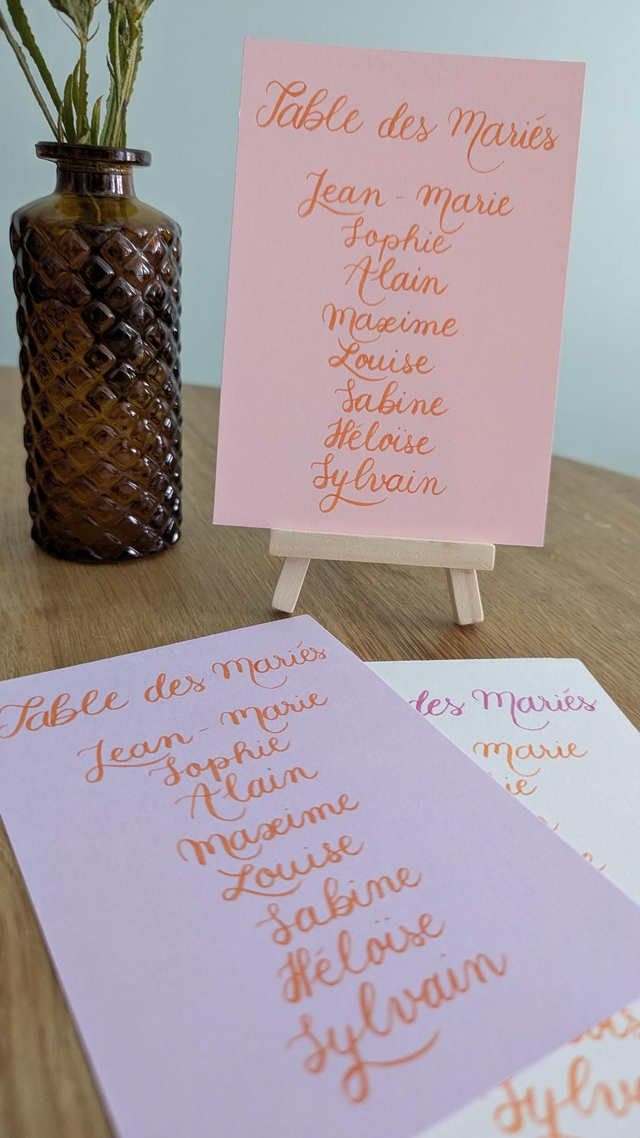 Table des Mariés
Jean - Marie
Sophie
Alain
Maxime
Louise
Sabine
Héloïse
Sylvain
Table des Mariés
Jean - Marie
Sophie
Alain
Maxime
Louise
Sabine
Héloïse
Sylvain
des Mariés
Marie